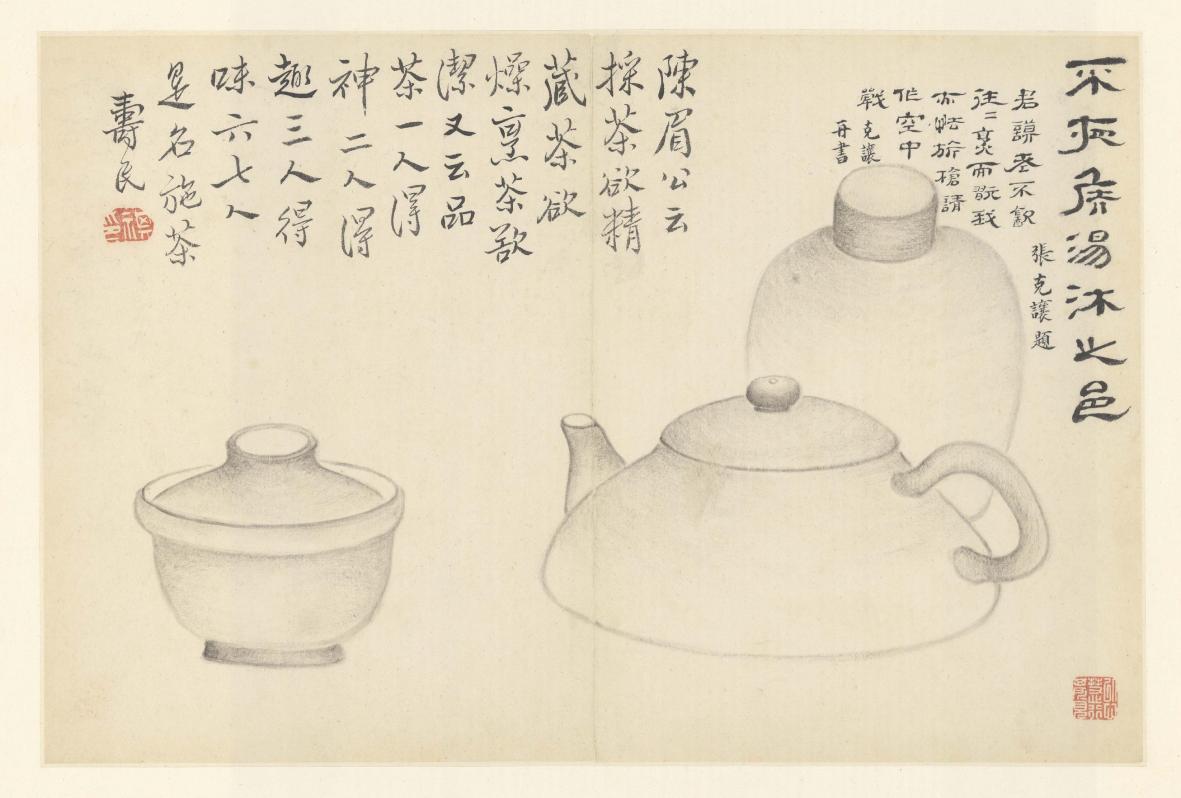 不夜侯湯沐之邑
張克讓題
君謨老不飲
往〻烹而翫我
亦旂槍請
作空中
戰 克讓
再書
陳眉公云
採茶欲精
藏茶欲
燥烹茶欲
潔又云品
茶一人得
神二人得
趣三人得
味六七人
是名施茶
壽民